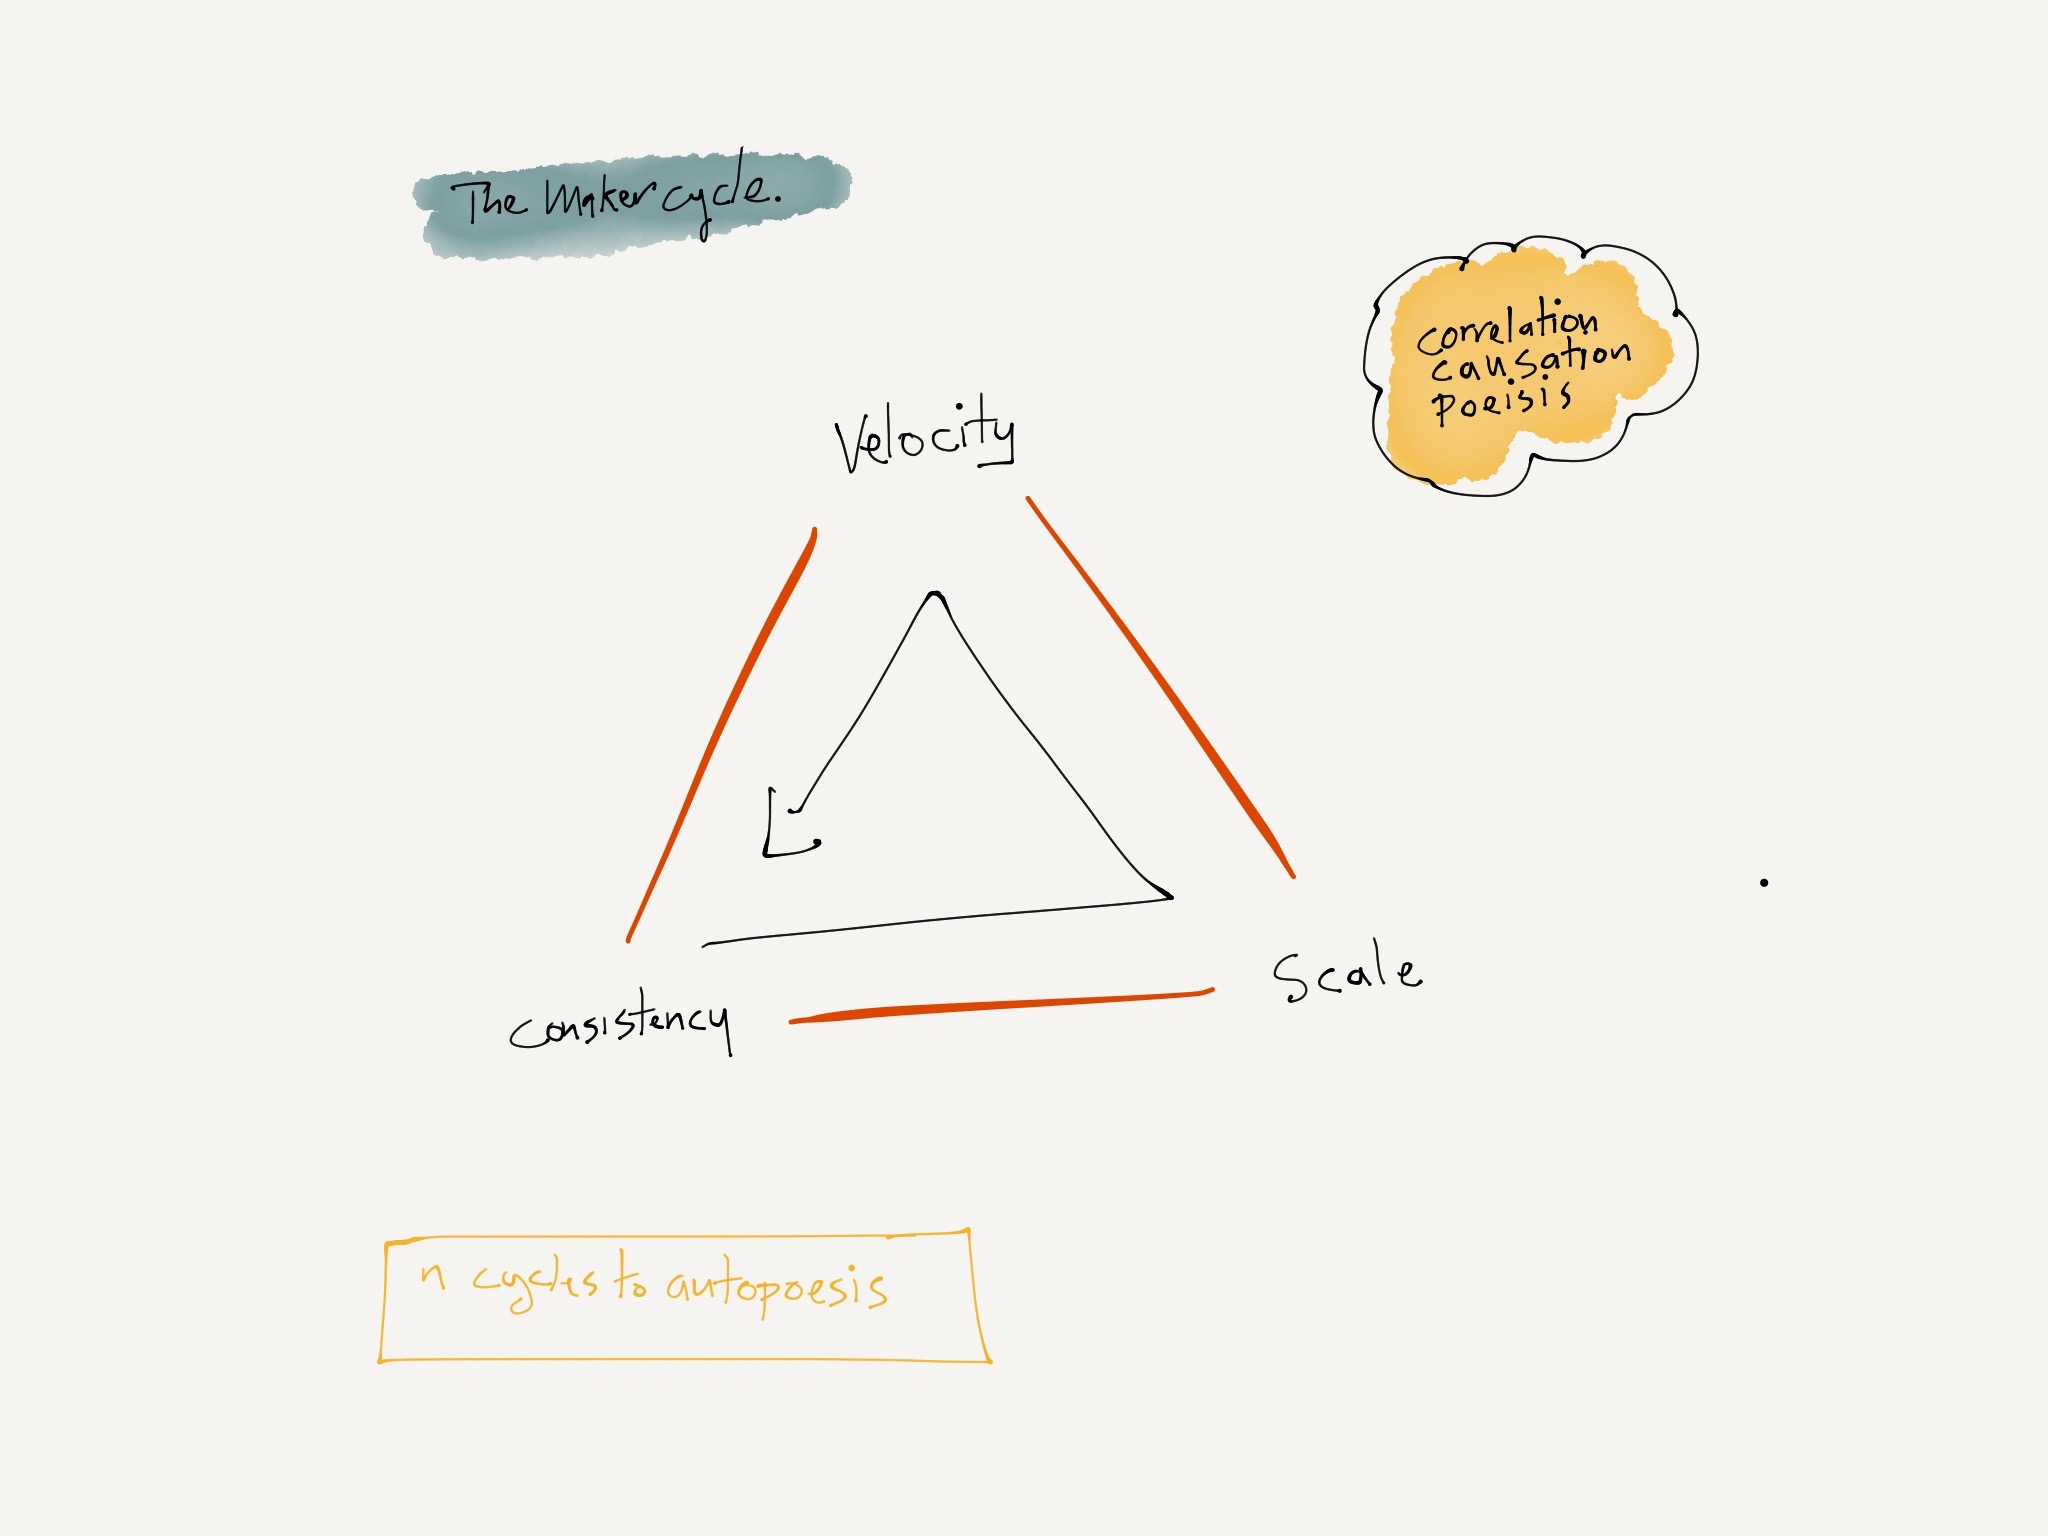 The Maker cycle.
correlation
causation
poeisis
Velocity
Scale
Consistency
n cycles to autopoesis